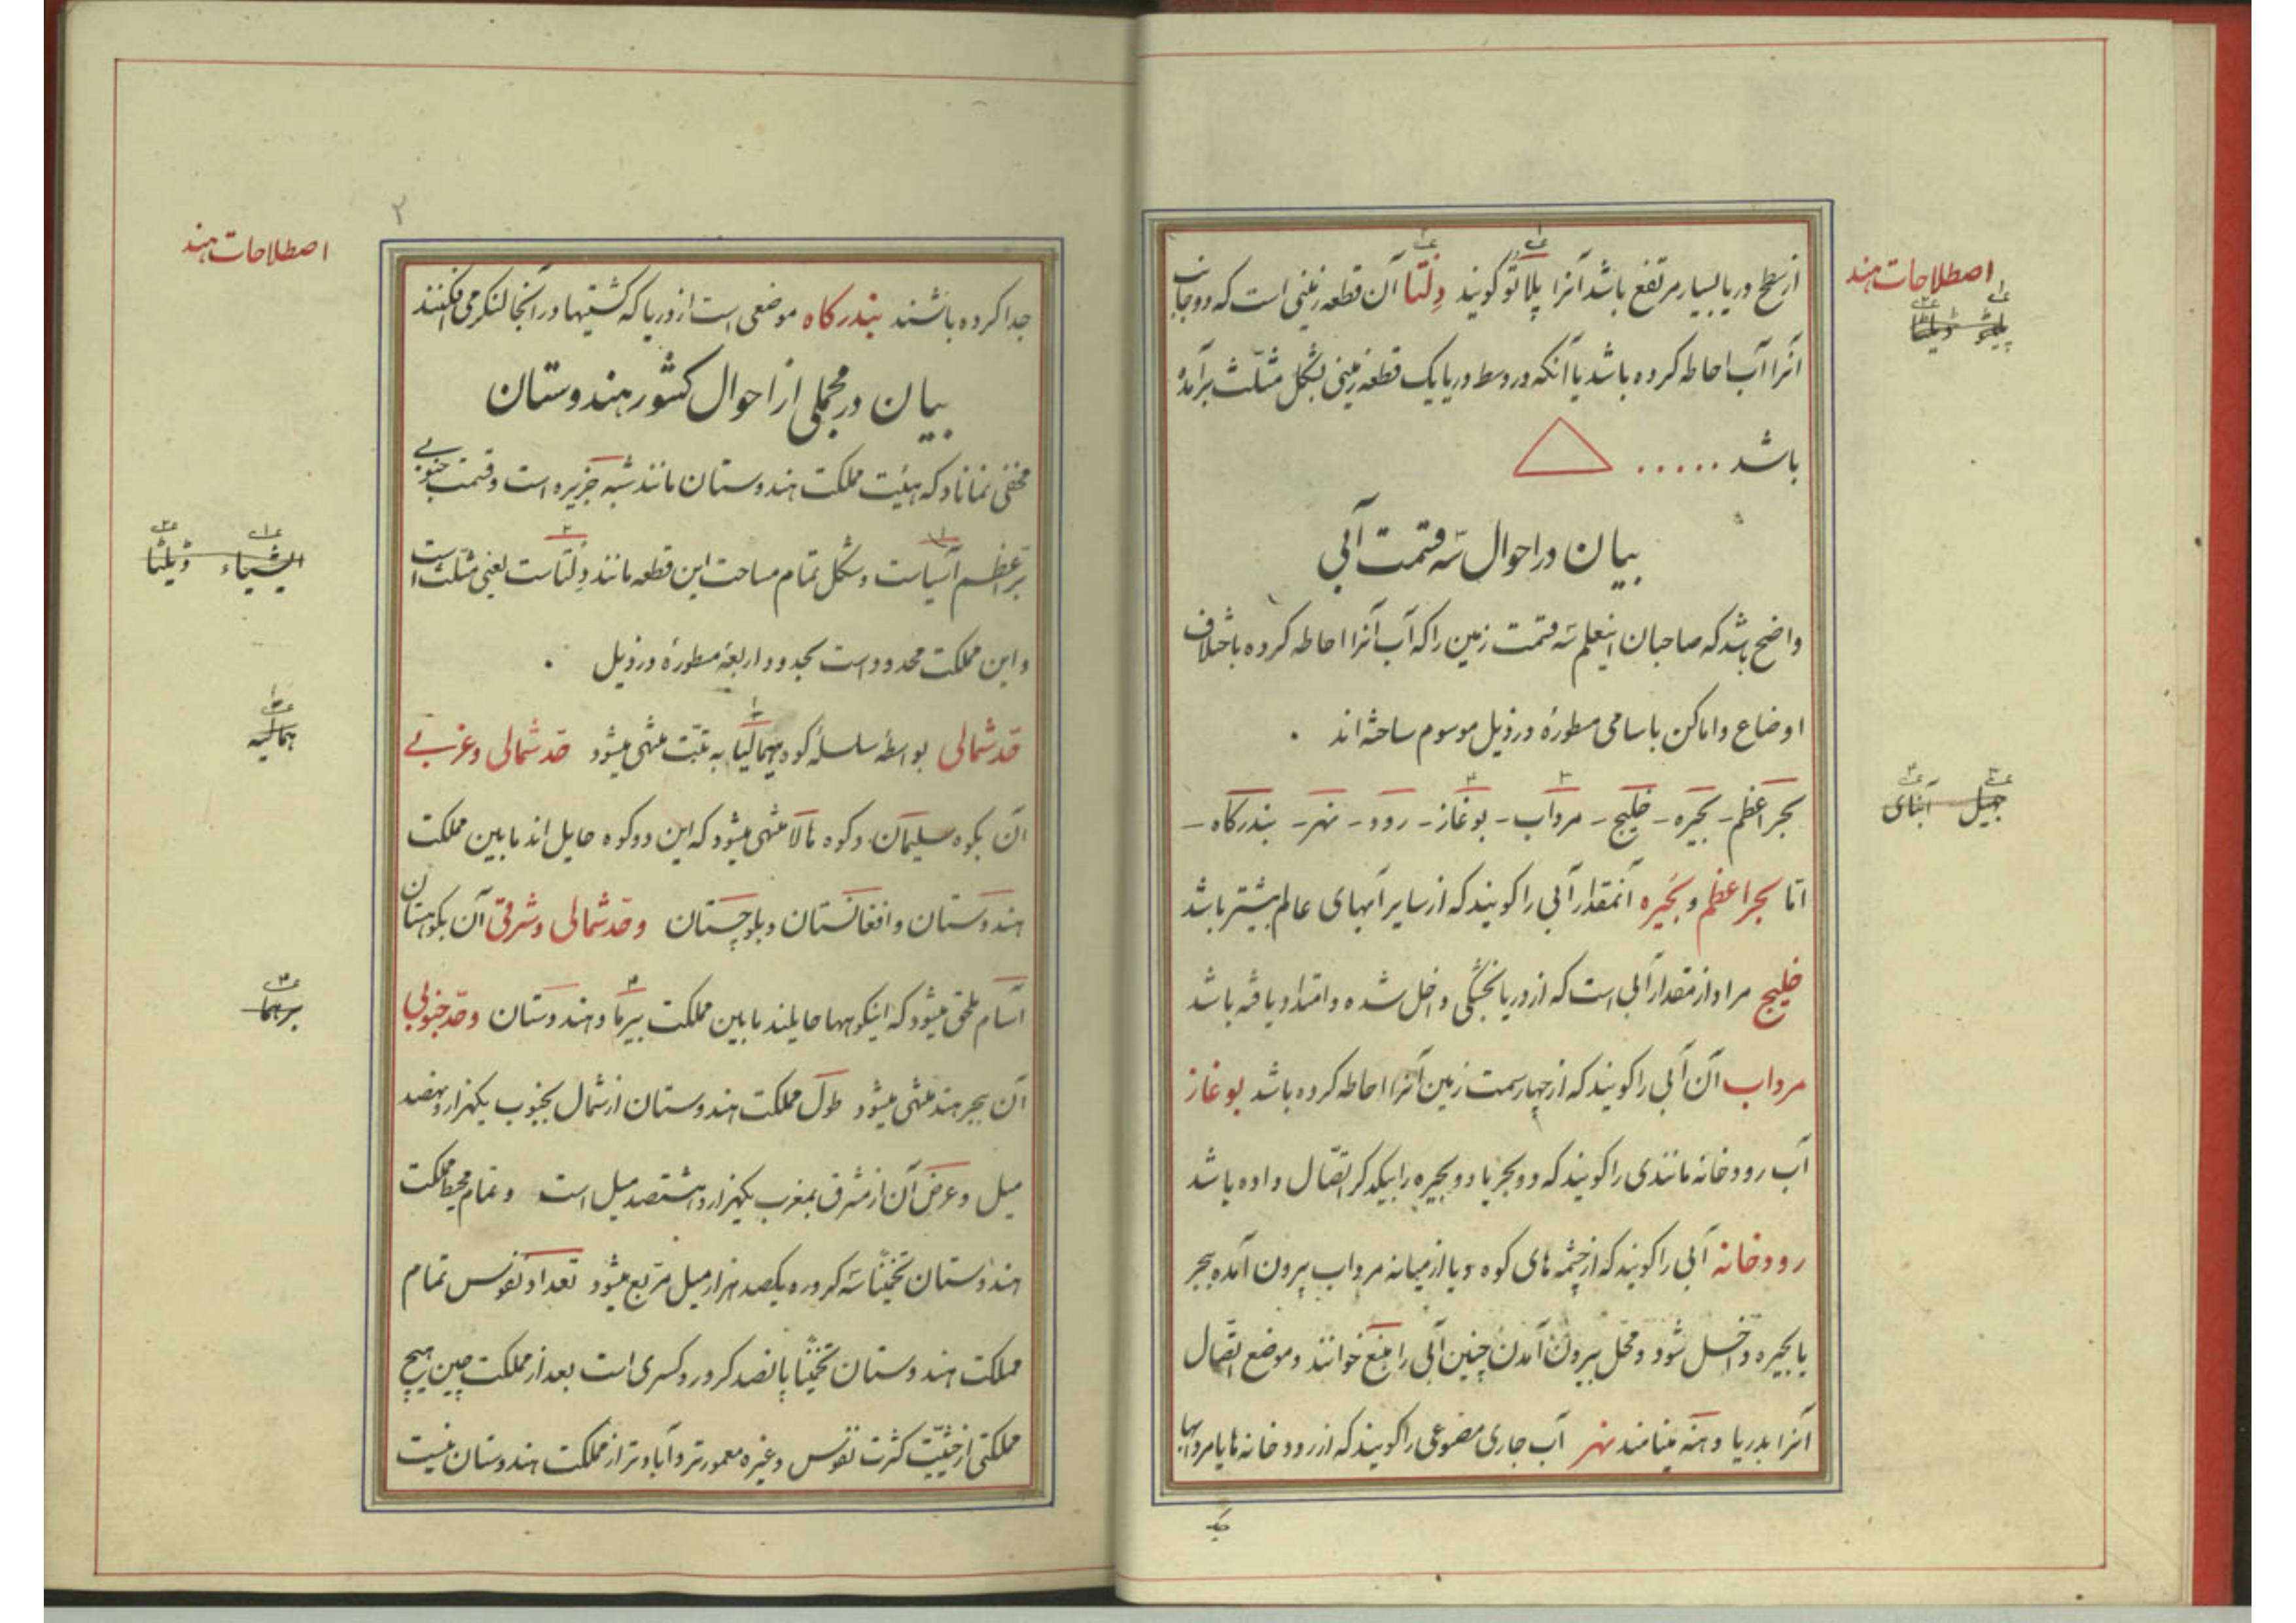 اصطلاحات هند
پلیٹو ڈیلٹا
از سطح دریا بسیار مرتفع باشد آنرا پلاتو گویند دلتا آن قطعه زمینی است که دو جانب
آنرا آب احاطه کرده باشد یا آنکه در وسط دریا یک قطعه زمینی بشکل مثلّث برآمده
باشد .....
بیان در احوال سه قسمت آبی
واضح باشد که صاحبان اینعلم سه قسمت زمین را که آب آنرا احاطه کرده باختلاف
اوضاع و اماکن باسامی مسطورهٔ در ذیل موسوم ساخته اند .
جهیل آبنای
بحر اعظم - بحیره - خلیج - مرداب - بوغاز - رود - نهر - بندرگاه -
امّا بحر اعظم و بحیره آنمقدار آبی را گویند که از سایر آبهای عالم بیشتر باشد
خلیج مراد از مقدار آبی است که از دریا بخشگی داخل شده و امتداد یافته باشد
مرداب آن آبی را گویند که از چهار سمت زمین آنرا احاطه کرده باشد بوغاز
آب رودخانه مانندی را گویند که دو بحر یا دو بحیره را بیکدگر اتّصال داده باشد
رودخانه آبی را گویند که از چشمه های کوه و یا از میانه مرداب بیرون آمده ببحر
یا بحیره داخل شود و محّل بیرون آمدن چنین آبی را منبع خوانند و موضع اتّصال
آنرا بدریا دهنه مینامند نهر آب جاری مصنوعی را گویند که از رودخانه ها یا مردابها
۲
اصطلاحات هند
جدا کرده باشند بندرگاه موضعی است از دریا که کشتیها در آنجا لنگر می افکنند
بیان در مجملی از احوال کشور هندوستان
مخفی نماناد که هیئت مملکت هندوستان مانند شبه جزیره است و قسمت جنوبی
ایشیاء ڈیلٹا
بّر اعظم آسیاست و شکل تمام مساحت این قطعه مانند دلتاست یعنی مثلّث است
و این مملکت محدود است بحدود اربعهٔ مسطورهٔ در ذیل .
همالیه
حّد شمالی بواسطه سلسلهٔ کوه هیمالیا به تبّت منتهی میشود حّد شمالی و غربی
آن بکوه سلیمان و کوه هالا منتهی میشود که این دو کوه حایل اند مابین مملکت
هندوستان و افغانستان و بلوچستان و حّد شمالی و شرقی آن بکوهستان
برهما
آسام ملحق میشود که اینکوهها حایلند مابین مملکت بیرما و هندوستان و حّد جنوبی
آن ببحر هند منتهی میشود طول مملکت هندوستان از شمال بجنوب یکهزار و نهصد
میل و عرض آن از مشرق بمغرب یکهزار و هشتصد میل است و تمام محیط مملکت
هندوستان تخمیناً سه کرور و یکصد هزار میل مربّع میشود تعداد نفوس تمام
مملکت هندوستان تخمیناً پانصد کرور و کسری است بعد از مملکت چین هیچ
مملکتی از حیثیّت کثرت نفوس و غیره معمورتر و آبادتر از مملکت هندوستان نیست